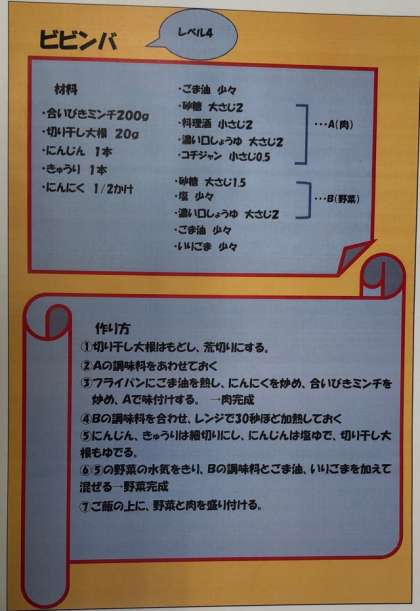 ビビンバ
レベル4
材料
・合いびきミンチ200g
・切り干し大根 20g
・にんじん 1本
・きゅうり 1本
・にんにく 1/2かけ
・ごま油 少々
・砂糖 大さじ2
・料理酒 小さじ2
・濃い口しょうゆ 大さじ2
・コチジャン 小さじ0.5
・・・A(肉)
・砂糖 大さじ1.5
・塩 少々
・濃い口しょうゆ 大さじ2
・・・B(野菜)
・ごま油 少々
・いりごま 少々
作り方
①切り干し大根はもどし、荒切りにする。
②Aの調味料をあわせておく
③フライパンにごま油を熱し、にんにくを炒め、合いびきミンチを
炒め、Aで味付けする。 ―肉完成
④Bの調味料を合わせ、レンジで30秒ほど加熱しておく
⑤にんじん、きゅうりは細切りにし、にんじんは塩ゆで、切り干し大
根もゆでる。
⑥⑤の野菜の水気をきり、Bの調味料とごま油、いりごまを加えて
混ぜる―野菜完成
⑦ご飯の上に、野菜と肉を盛り付ける。